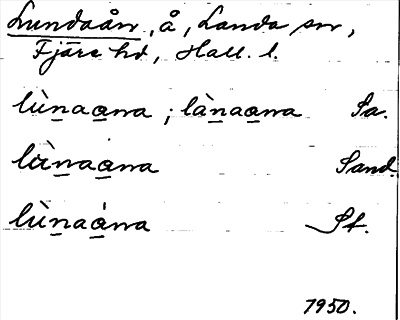 Lundaån, å, Landa sn,
Fjäre hd, Hall. l.
lùnaana; lànaana Sa.
lùnaana Sand.
lùnaána St.
1950.